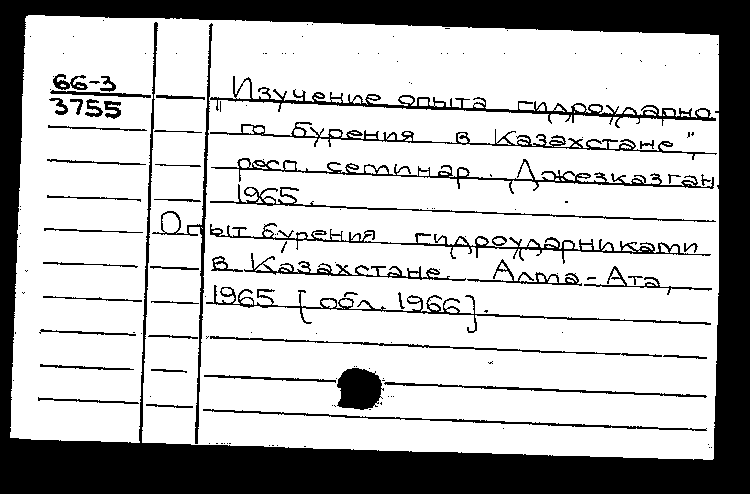 66-3
3755
„Изучение опыта гидроударно-
го бурения в Казахстане",
респ. семинар. Джезказган.
1965.
Опыт бурения гидроударниками
в Казахстане. Алма-Ата,
1965 [обл. 1966].